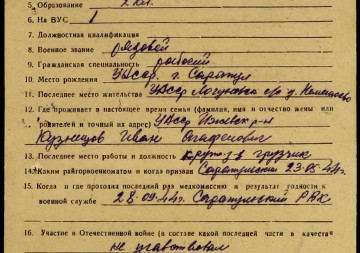 5. Образование 2 кл.
6. На ВУС 1
7. Должностная квалификация
8. Военное звание рядовой
9. Гражданская специальность рабочий
10. Место рождения УАССР, г. Сарапул
11. Последнее место жительства УАССР
12. Где проживает в настоящее время семья (фамилия, имя и отчество жены или
родителей и точный их адрес) УАССР Ижевск
Кузнецов Иван Агафонович
13. Последнее место работы и должность грузчик
14. Каким райгорвоенкоматом и когда призван Сарапульский 23.05.44г.
15. Когда и где проходил последний раз медкомиссию и результат годности к
военной службе 28.09.44г. Сарапульский РВК
16. Участие в Отечественной войне (в составе какой последней части в качеств
не участвовал